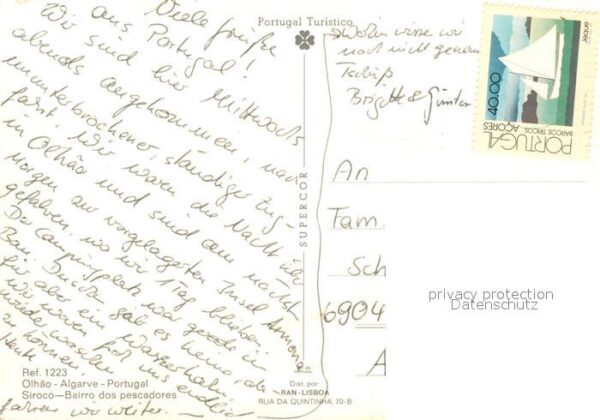 Portugal Turístico
Viele Grüße
aus Portugal!
Wir sind hier Mittwochs
abends angekommen, nach
ununterbrochener, ständiger Zug-
fahrt. Wir waren die Nacht über
in Olhão und sind am nächst.
Morgen zur vorgelagerten Insel Armona
gefahren, wo wir 1 Tag blieben.
Der Campingplatz war gerade im
Bau. Duschen gab es keine, da-
für aber ein Wasserhahn
wir waren froh uns endlich
waschen
zu können.
Heute
fahren wir weiter.
wohin wissen wir
noch nicht genau
Tschüß
Brigitte & Günter
An
Fam.
Sch
6904
A
SUPERCOR
Ref. 1223
Olhão - Algarve - Portugal
Siroco—Bairro dos pescadores
Dist. por
RAN - LISBOA
RUA DA QUINTINHA 70-B
40.00
BARCOS TÍPICOS
AÇORES
PORTUGAL
privacy protection
Datenschutz